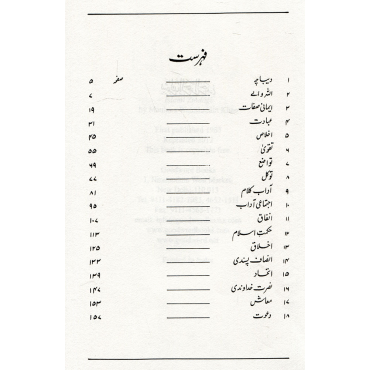 فہرست
۱ دیباچہ صفحہ ۵
۲ اللہ والے ۷
۳ ایمانی صفات ۱۹
۴ عبادت ۳۱
۵ اخلاص ۴۵
۶ تقویٰ ۵۵
۷ تواضع ۶۹
۸ توکل ۷۷
۹ آداب کلام ۸۱
۱۰ اجتماعی آداب ۹۵
۱۱ انفاق ۱۰۷
۱۲ حکمتِ اسلام ۱۱۳
۱۳ اخلاق ۱۲۵
۱۴ انصاف پسندی ۱۳۳
۱۵ اتحاد ۱۳۹
۱۶ نصرت خداوندی ۱۴۷
۱۷ معاش ۱۵۳
۱۸ دعوت ۱۵۷